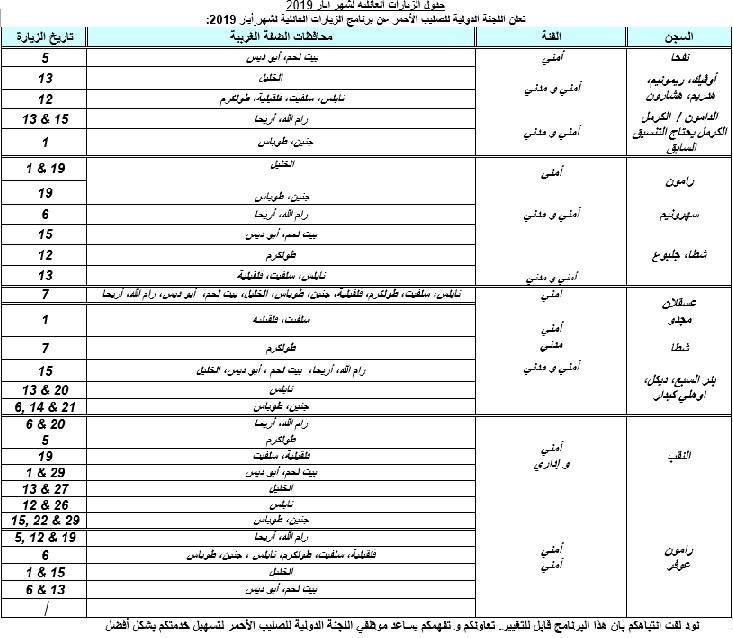 جدول الزيارات العائلية لشهر ايار 2019
تعلن اللجنة الدولية للصليب الأحمر عن برنامج الزيارات العائلية لشهر أيار 2019:
السجن الفئة محافظات الضفة الغربية تاريخ الزيارة
نفحا أمني بيت لحم، أبو ديس 5
أوفيك، ريمونيم، الخليل 13
هدريم، هشارون أمني و مدني نابلس، سلفيت، قلقيلية، طولكرم 12
الدامون / الكرمل رام الله، أريحا 13 & 15
الكرمل يحتاج التنسيق أمني و مدني
السابق جنين، طوباس 1
الخليل 1 & 19
رامون أمني
جنين، طوباس 19
سهرونيم أمني و مدني رام الله، أريحا 6
بيت لحم، أبو ديس 15
شطا، جلبوع طولكرم 12
أمني و مدني نابلس، سلفيت، قلقيلية 13
عسقلان أمني نابلس، سلفيت، طولكرم، قلقيلية، جنين، طوباس، الخليل، بيت لحم، أبو ديس، رام الله، أريحا 7
مجدو أمني سلفيت، قلقيلية 1
شطا مدني طولكرم 7
أمني و مدني رام الله، أريحا، بيت لحم ، أبو ديس، الخليل 15
بئر السبع، ديكل، نابلس 13 & 20
اوهلي كيدار جنين، طوباس 6, 14 & 21
رام الله، أريحا 6 & 20
طولكرم 5
النقب أمني و إداري قلقيلية، سلفيت 19
بيت لحم، أبو ديس 1 & 29
الخليل 13 & 27
نابلس 12 & 26
جنين، طوباس 15, 22 & 29
رام الله، أريحا 5, 12 & 19
رامون أمني قلقيلية، سلفيت، طولكرم، نابلس ، جنين، طوباس 6
عوفر أمني الخليل 1 & 15
بيت لحم، أبو ديس 6 & 13
/
نود لفت انتباهكم بان هذا البرنامج قابل للتغيير.. تعاونكم و تفهمكم يساعد موظفي اللجنة الدولية للصليب الأحمر لتسهيل خدمتكم بشكل أفضل